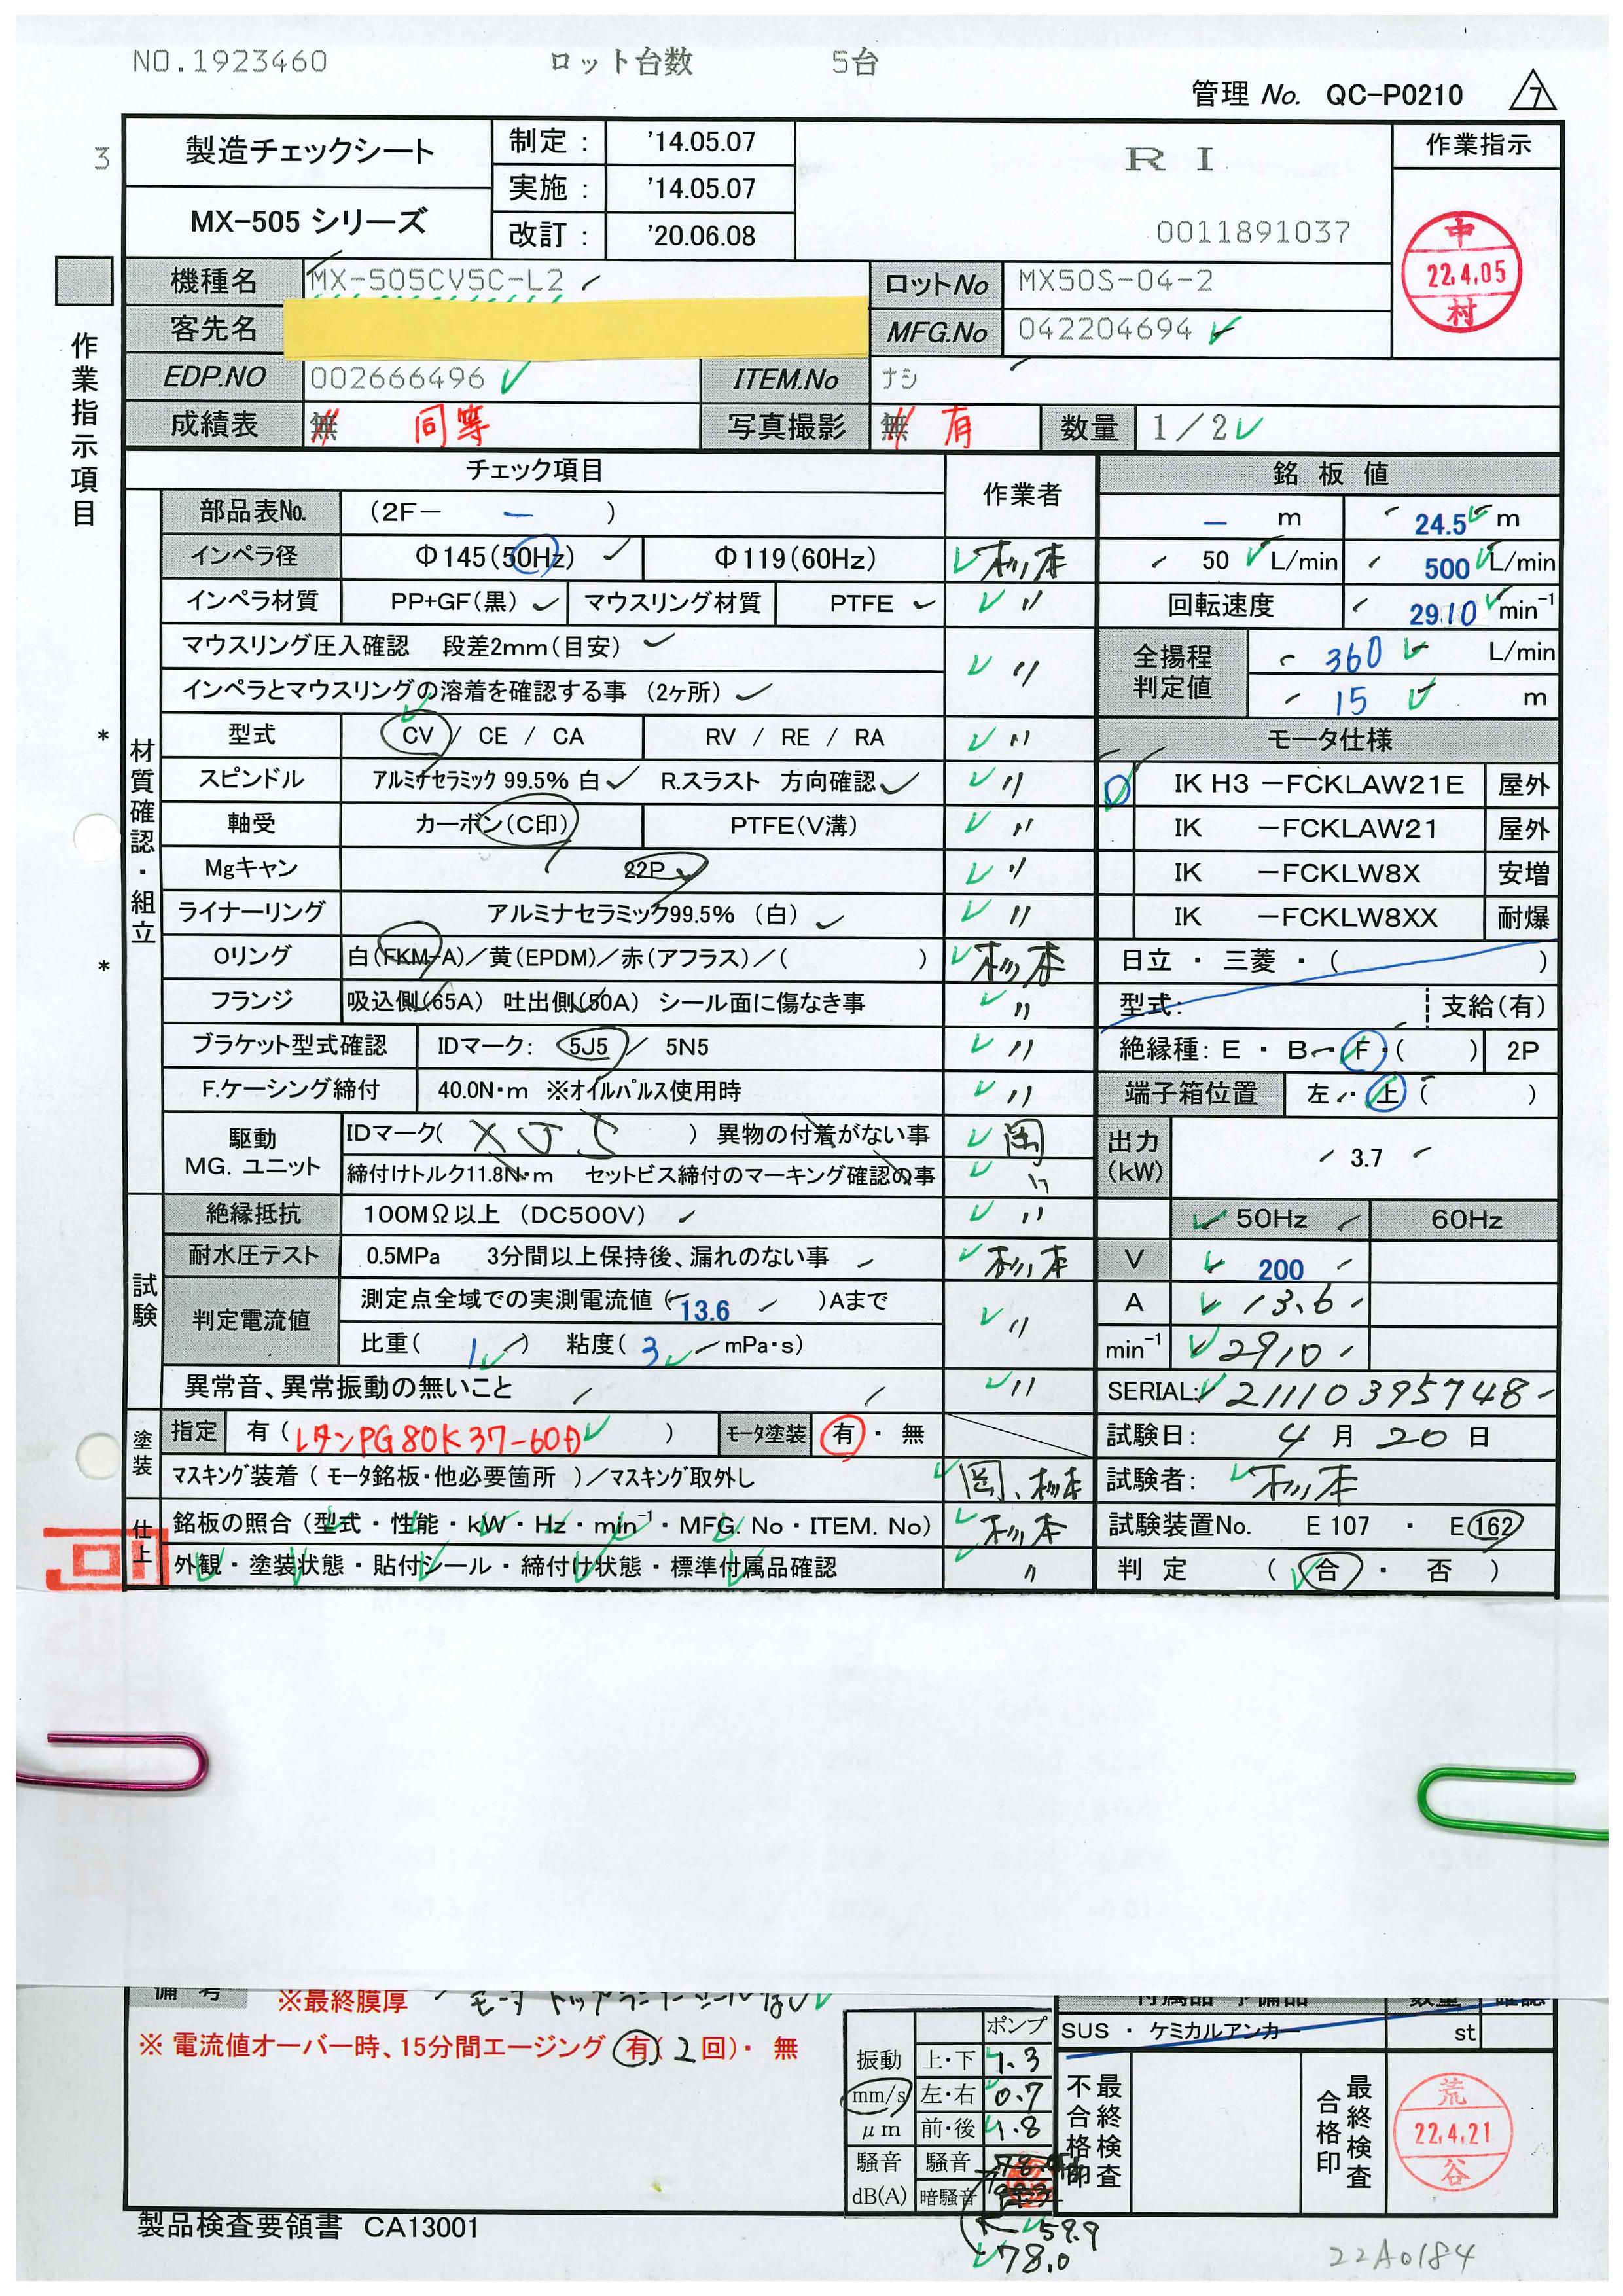 NO.1923460 ロット台数 5台
管理 No. QC-P0210 7
3
製造チェックシート
MX-505 シリーズ
制定： '14.05.07
実施： '14.05.07
改訂： '20.06.08
R I
0011891037
作業指示
中
22.4.05
村
作業指示項目
機種名 MX-505CV5C-L2 ロットNo MX50S-04-2
客先名 MFG.No 042204694
EDP.NO 002666496 ITEM.No ナシ
成績表 無 同等 写真撮影 無 有 数量 1/2
チェック項目 作業者
材質確認・組立
部品表No. (2F- - )
インペラ径 Φ145(50Hz) Φ119(60Hz) 松本
インペラ材質 PP+GF(黒) マウスリング材質 PTFE 〃
マウスリング圧入確認 段差2mm(目安)
インペラとマウスリングの溶着を確認する事 (2ヶ所) 〃
* 型式 CV / CE / CA RV / RE / RA 〃
スピンドル アルミナセラミック 99.5% 白 R.スラスト 方向確認 〃
軸受 カーボン(C印) PTFE(V溝) 〃
Mgキャン 22P 〃
ライナーリング アルミナセラミック99.5% (白) 〃
* Oリング 白(FKM-A)/黄(EPDM)/赤(アフラス)/( ) 松本
フランジ 吸込側(65A) 吐出側(50A) シール面に傷なき事 〃
ブラケット型式確認 IDマーク: 5J5 / 5N5 〃
F.ケーシング締付 40.0N・m ※オイルパルス使用時 〃
駆動 MG. ユニット
IDマーク( XJ5 ) 異物の付着がない事 岡
締付けトルク11.8N・m セットビス締付のマーキング確認の事 〃
試験
絶縁抵抗 100MΩ以上 (DC500V) 〃
耐水圧テスト 0.5MPa 3分間以上保持後、漏れのない事 松本
判定電流値 測定点全域での実測電流値 ( 13.6 )Aまで
比重( 1 ) 粘度( 3 mPa・s) 〃
異常音、異常振動の無いこと 〃
塗装
指定 有 ( レタンPG80K37-60D ) モータ塗装 有 ・ 無
マスキング装着 ( モータ銘板・他必要箇所 )/マスキング取外し 岡、松本
仕上
銘板の照合 (型式 ・ 性能 ・ kW ・ Hz ・ min-1 ・ MFG. No ・ ITEM. No) 松本
外観 ・ 塗装状態 ・ 貼付シール ・ 締付け状態 ・ 標準付属品確認 〃
銘板値
- m 24.5 m
50 L/min 500 L/min
回転速度 2910 min-1
全揚程判定値 360 L/min
15 m
モータ仕様
IK H3 -FCKLAW21E 屋外
IK -FCKLAW21 屋外
IK -FCKLW8X 安増
IK -FCKLW8XX 耐爆
日立 ・ 三菱 ・ ( )
型式: 支給(有)
絶縁種: E ・ B ・ F ・ ( ) 2P
端子箱位置 左 ・ 上 ( )
出力(kW) 3.7
50Hz 60Hz
V 200
A 13.6
min-1 2910
SERIAL: 21110395748
試験日: 4 月 20 日
試験者: 松本
試験装置No. E 107 ・ E 162
判定 ( 合 ・ 否 )
備考 ※最終膜厚
※ 電流値オーバー時、15分間エージング 有( 2 回)・ 無
ポンプ
振動 mm/s μm
上・下 1.3
左・右 0.7
前・後 1.8
騒音 dB(A)
騒音
暗騒音
59.9
78.0
付属品・予備品 数量 確認
SUS ・ ケミカルアンカー st
最終検査不合格印
最終検査合格印
荒
22.4.21
谷
製品検査要領書 CA13001
22A0184